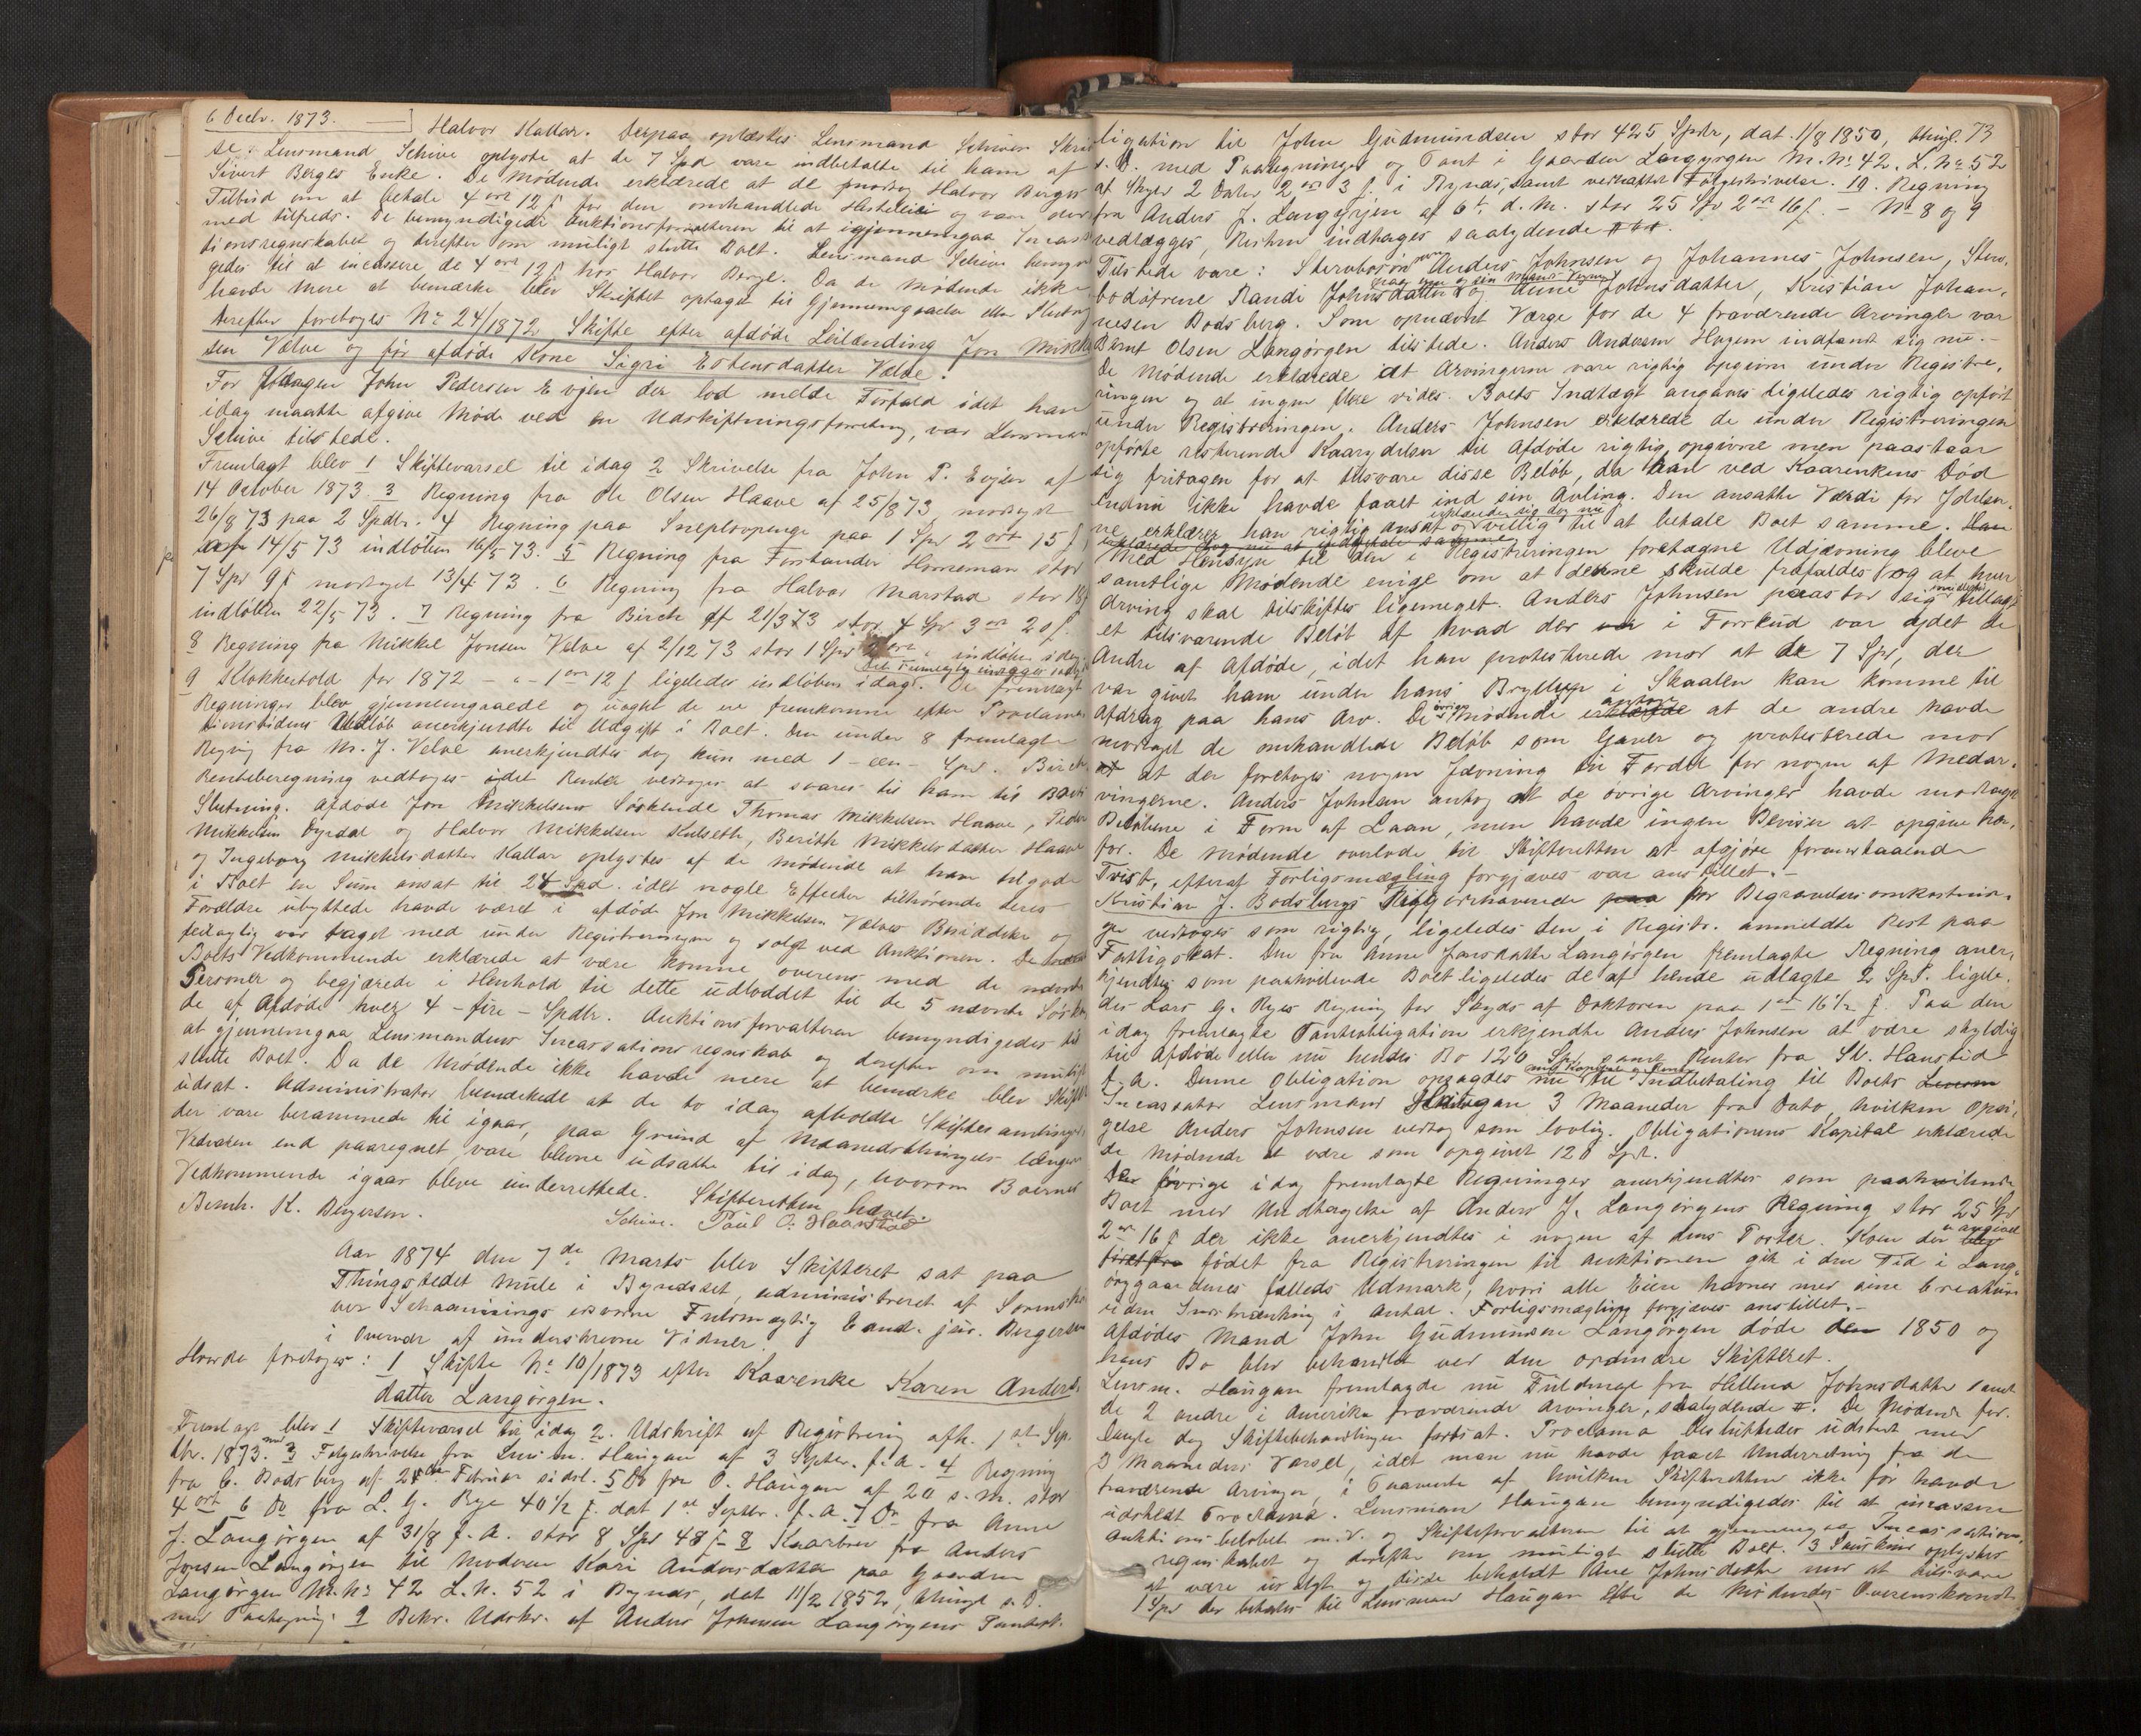 6 Decbr. 1873.
Halvor Kallar. Derpaa oplæstes Lensmand Schives Skri
se. Lensmand Schive oplyste at de 7 Spd vare indbetalte til ham af
Sivert Berges Enke. De Mødende erklærede at de modtog Halvor Berges
Tilbud om at betale 4 ort 12 ß for den omhandlede Hesteleie og vare der
med tilfreds. De bemyndigede Auktionsforvalteren til at igjennemgaa Incassa
tionsregnskabet og derefter om muligt slutte Boet. Lensmand Schive bemyn
gedes til at incassere de 4 ort 12 ß hos Halvor Berge. Da de Mødende ikke
havde mere at bemærke blev Skiftet optaget til Gjennemgaaelse eller Slutning
Derefter foretoges No 24/1872 Skifte efter afdøde Leilænding Jon Mikkel
sen Velve og før afdøde Kone Sigri Estensdatter Velve.
For Værgen John Pedersen Evjen der lod melde Forfald idet han
idag maatte afgive Møde ved en Udskiftningsforretning, var Lensmand
Schive tilstede.
Fremlagt blev 1 Skiftevarsel til idag 2 Skrivelse fra John P. Evjen af
14 October 1873. 3 Regning fra Ole Olsen Haave af 25/8 73 modtaget
26/8 73 paa 2 Spdlr. 4 Regning paa Sneplovpenge paa 1 Spd 2 ort 15 ß,
14/5 73 indløben 16/5 73. 5 Regning fra Forstander Horneman stor
7 Spd 9 ß modtaget 13/4 73. 6 Regning fra Halvor Marstad stor 18 ß
indløben 22/5 73. 7 Regning fra Birch af 21/3 73 stor 4 Spd 3 ort 20 ß.
8 Regning fra Mikkel Jonsen Velve af 2/12 73 stor 1 Spd 2 ort indløben idag.
9 Klokkertold for 1872 - „ - 1 ort 12 ß ligeledes indløben idag. De fremlagte
Det Fremlagte indtages saalyd
Regninger blev gjennemgaaede og uagtet de ere fremkomne efter Proclama
tionstidens Udløb anerkjendte til Udgift i Boet. Den under 8 fremlagte
Regng fra M. J. Velve anerkjendtes dog kun med 1 - een - Spd. Birchs
Renteberegning vedtoges idet Renter vedtoges at svares til ham til Boets
Slutning. Afdøde Jon Mikkelsens Søskende Thomas Mikkelsen Haave, Peder
Mikkelsen Dyrdal og Halvor Mikkelsen Kulseth, Berith Mikkelsdatter Haave
og Ingeborg Mikkelsdatter Kallar oplystes af de Mødende at have tilgode
i Boet en Sum ansat til 24 Spd. idet nogle Effecter tilhørende deres
Forældre ubyttede havde været i afdøde Jon Mikkelsen Velves Besiddelse og
feilagtig var taget med under Registreringen og solgt ved Auktionen. De
Boets Vedkommende erklærede at være komne overens med de nævnte
Personer og begjærede i Henhold til dette udloddet til de 5 nævnte Søsken
de af Afdøde hver 4 - fire - Spdlr. Auktionsforvalteren bemyndigedes til
at gjennemgaa Lensmandens Incassationsregnskab og derefter om muligt
slutte Boet. Da de Mødende ikke havde mere at bemærke blev Skiftet
udsat. Administrator bemærkede at de to idag afholdte Skiftesamlinger,
der vare berammede til igaar, paa Grund af Maanedsthingets længere
Vedvaren end paaregnet, vare blevne udsatte til idag, hvorom Boernes
Vedkommende igaar bleve underrettede. Skifteretten hævet.
Bernh. K. Bergersen. Schive. Paul O. Haarstad
Aar 1874 den 7de Marts blev Skifteret sat paa
Thingstedet Mule i Byndsset, administreret af Sorenskri
ver Schaannings edsvorne Fuldmægtig Cand. jur. Bergersen
i Overvær af underskrevne Vidner.
Hvorda foretoges: 1 Skifte No 10/1873 efter Kaarenke Karen Anders
datter Langørgen.
Fremlagt blev 1 Skiftevarsel til idag 2. Udskrift af Registrering afh. 1ste Sep.
tbr. 1873. med 3 Følgeskrivelse fra Lensm. Haugan af 3 Septbr. f. A. 4 Regning
fra C. Bodsberg af 28de Februar sidstl. 5 Do fra O. Haugan af 20 s. M. stor
4 ort 6 Do fra L. G. Rye 40 1/2 ß. dat 1ste Septbr. f. A. 7 Do fra Anne
J. Langørgen af 31/8 f. A. stor 8 Spd 48 ß - 8 Kaarbrev fra Anders
Jonsen Langørgen til Moderen Kari Andersdatter paa Gaarden
Langørgen M. No 42 L. N. 52 i Bynds, dat 11/2 1852, thingl. s. D.
med Paategning. 9 Bekr. Udskr. af Anders Johnsen Langørgens Pantobl.
73
ligation til John Gudmundsen stor 425 Spdlr, dat. 1/8 1850, thingl.
s. D. med Paategninger og Pant i Gaarden Langørgen M. No 42. L. No 52
af Skyld 2 Daler 2 ort 3 ß. i Bynds, samt vedhæftet Følgeskrivelse. 10. Regning
fra Anders J. Langørgen af 6te d. M. stor 25 Spd 2 ort 16 ß. - No 8 og 9
vedlægges, Resten indtages saalydende
Tilstede vare: Stervbosønnerne Anders Johnsen og Johannes Johnsen, Sterv.
bodøtrene Randi Johnsdatter og Anne Johnsdatter, Kristian Johan,
nesen Bodsberg. Som opnævnt Værge for de 4 fraværende Arvinger var
Bernt Olsen Langørgen tilstede. Anders Andersen Hagem indfandt sig nu. -
De Mødende erklærede at Arvingerne vare rigtig opgivne under Registre.
ringen og at ingen flere vides. Boets Indtægt angaves ligeledes rigtig opført
under Registreringen. Anders Johnsen erklærede de under Registreringen
opførte resterende Kaarydelser til Afdøde rigtig opgivne men paastaar
sig fritagen for at tilsvare disse Beløb, da han ved Kaarenkens Død
endnu ikke havde faaet ind sin Avling. Den ansatte Værdi for
erklærer han rigtig ansat og erklærede sig dog nu villig til at betale Boet samme. Han
erklærede dog nu at indbetale samme
Med Hensyn til den i Registreringen foretagne Udjævning bleve
samtlige Mødende enige om at denne skulde frafaldes og at hver
Arving skal tilskiftes ligemeget. Anders Johnsen paastod sig imidlertid tillagt
et tilsvarende Beløb af hvad der i Forskud var ydet de
Andre af Afdøde, idet han protesterede mod at de 7 Spd, der
var givet ham under hans Bryllup i Skaalen kan komme til
Afdrag paa hans Arv. De øvrige Mødende erklærede antog at de andre havde
modtaget de omhandlede Beløb som Gaver og protesterede mod
at der foretoges nogen Jævning til Fordel for nogen af Medar.
vingerne. Anders Johnsen antog at de øvrige Arvinger havde modtaget
Beløbene i Form af Laan, men havde ingen Beviser at opgive her,
for. De Mødende overlode til Skifteretten at afgjøre foranstaaende
Tvist, efterat Forligsmægling forgjæves var anstillet. -
Kristian J. Bodsbergs Tilgodehavende paa for Begravelsesomkostnin.
ger vedtoges som rigtig, ligeledes den i Registr. anmeldte Rest paa
Fattigskat. Den fra Anne Jonsdatter Langørgen fremlagte Regning aner,
kjendtes som paahvilende Boet ligeledes de af hende udlagte 2 Spd. ligele.
des Lars G. Ryes Regning for Skyds af Doktoren paa 1 ort 16 1/2 ß. Paa den
idag fremlagte Pantobligation erkjendte Anders Johnsen at være skyldig
til Afdøde eller nu hendes Bo 120 Spd, samt Renter fra St. Hanstid
f. A. Denne Obligation opsagdes nu til Indbetaling til Boets
Incassator Lensmand Haugan 3 Maaneder fra Dato, hvilken Opsi,
gelse Anders Johnsen vedtog som lovlig. Obligationens Kapital erklærede
de Mødende at være som opgivet 120 Spd.
De øvrige idag fremlagte Regninger anerkjendtes som paahvilende
Boet med Undtagelse af Anders J. Langørgens Regning stor 25 Spd
2 ort 16 ß der ikke anerkjendtes i nogen af dens Poster. Koen der er angivet
fødet fra Registreringen til Auktionen gik i den Tid i Lang,
ørggaardenes fælleds Udmark, hvori alle Eiere havner med sine Creature
uden Indskrænkning i Antal. Forligsmægling forgjæves anstillet. -
Afdødes Mand John Gudmundsen Langørgen døde 1850 og
hans Bo blev behandlet ved den ordinære Skifteret.
Lensm. Haugan fremlagde nu Fuldmagt fra Hellena Johnsdatter samt
de 2 andre i Amerika fraværende Arvinger, saalydende. De Mødende for.
langte dog Skiftebehandlingen fortsat. Proclama besluttedes udstedt med
3 Maaneders Varsel, idet man nu havde faaet Underretning fra de
fraværende Arvinger, i Fravær af hvilken Skifteretten ikke før havde
udstedt Proclama. Lensmand Haugan bemyndigedes til at incassere
Auktionsbeløbet m. V. og Skifteforvalteren til at gjennemgaa Incassations,
regnskabet og derefter om muligt slutte Boet. oplystes
at være usolgt og disse beholdt Ane Johnsdatter mod at tilsvare
1 Spd der betales til Lensmand Haugan efter de Mødendes Overenskomst